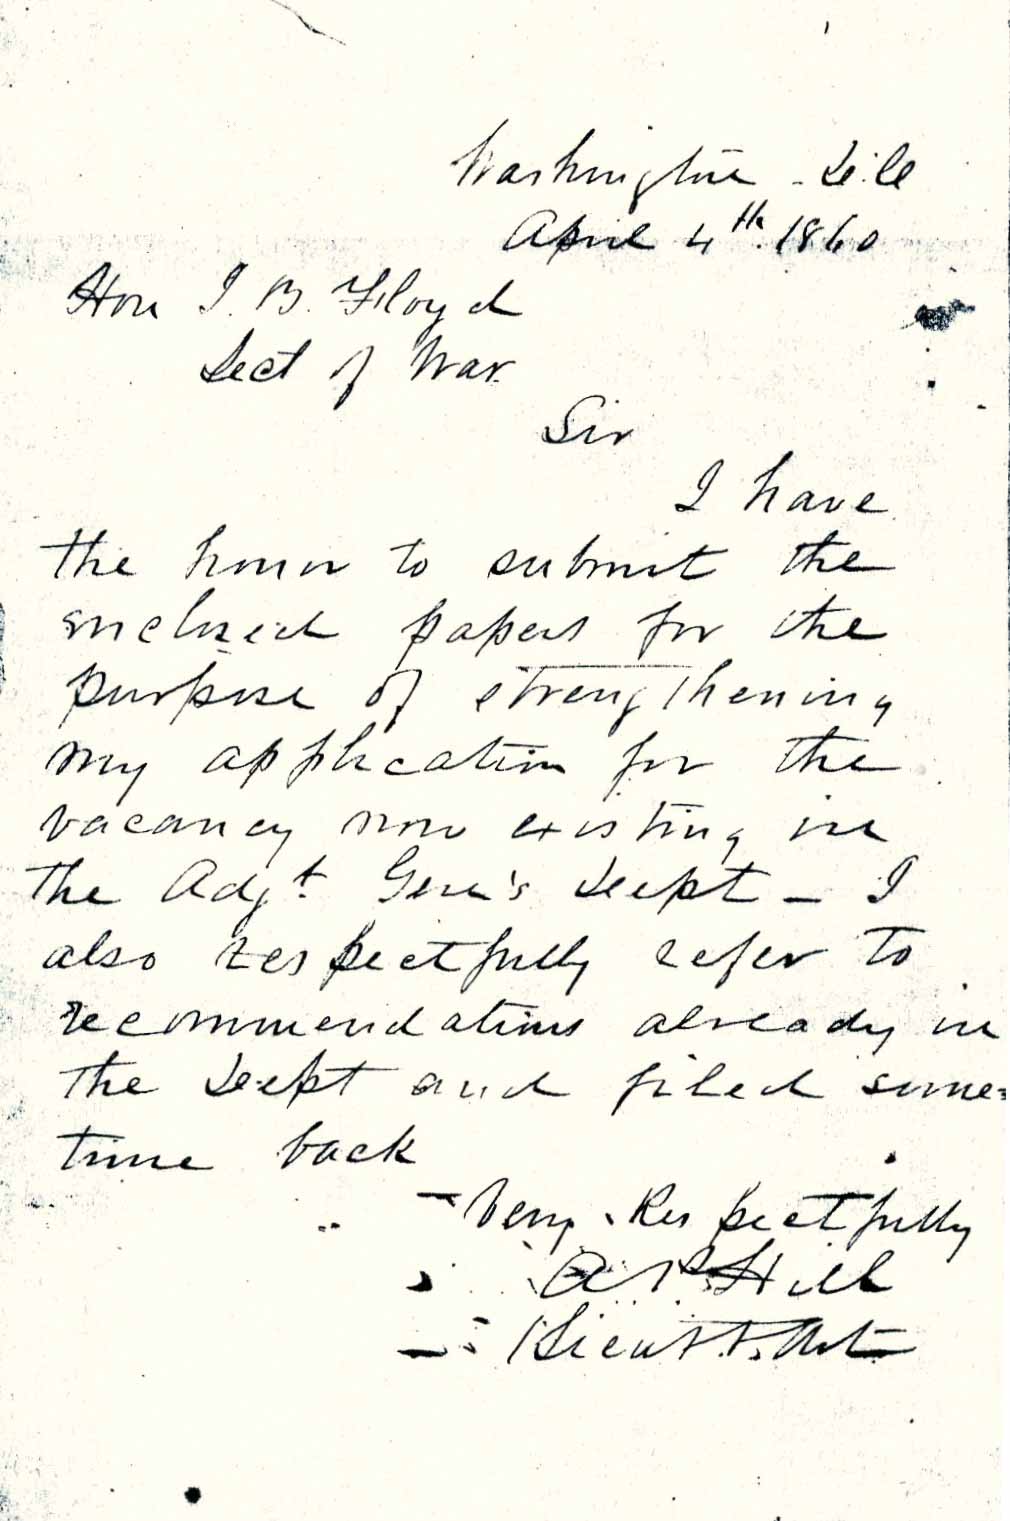 Washington D.C.
April 4th 1860
Hon J. B. Floyd
Sect of War.
Sir
I have
the honor to submit the
enclosed papers for the
purpose of strengthening
my application for the
vacancy now existing in
the Adjt Gen's Dept — I
also respectfully refer to
recommendations already in
the Dept and filed some=
time back
Very Respectfully
A P Hill
Lieut 1. Art